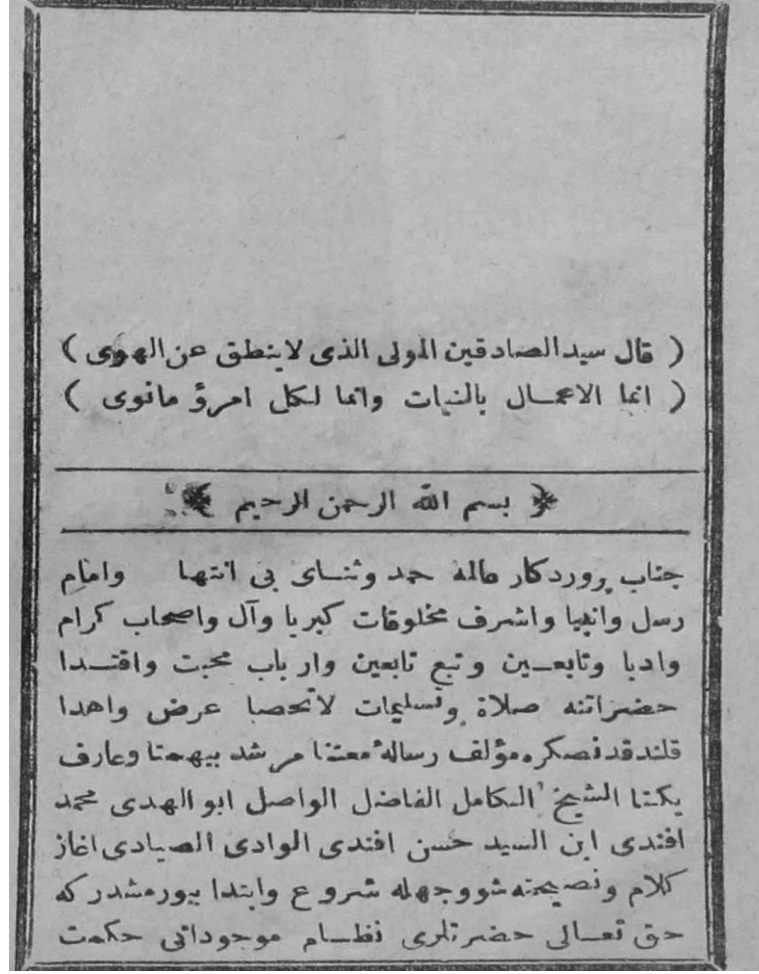 ( قال سيد الصادقين المولى الذى لاينطق عن الهوى )
( انما الاعمال بالنيات وانما لكل امرؤ مانوى )
﴿ بسم الله الرحمن الرحيم ﴾
جناب پروردكار عالمه حمد وثناى بى انتها وامام
رسل وانبيا واشرف مخلوقات كبريا وآل واصحاب كرام
وادبا وتابعين وتبع تابعين وارباب محبت واقتدا
حضراتنه صلاة وتسليمات لاتحصا عرض واهدا
قلندقدنصكره مؤلف رسالۀ معتنا مرشد بيهمتا وعارف
يكتا الشيخ الكامل الفاضل الواصل ابو الهدى محمد
افندى ابن السيد حسن افندى الوادى الصيادى اغاز
كلام ونصيحته شووجهله شروع وابتدا بيورمشدركه
حق تعالى حضرتلرى نظام موجوداتى حكمت